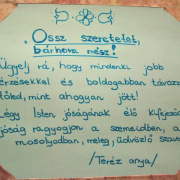 „Ossz szeretetet,
bárhova mész!
Ügyelj rá, hogy mindenki jobb
érzésekkel és boldogabban távozz
tőled, mint ahogyan jött!
Légy Isten jóságának élő kifejező
jóság ragyogjon a szemeidben, a
mosolyodban, meleg, üdvözlő szava
/Teréz anya/